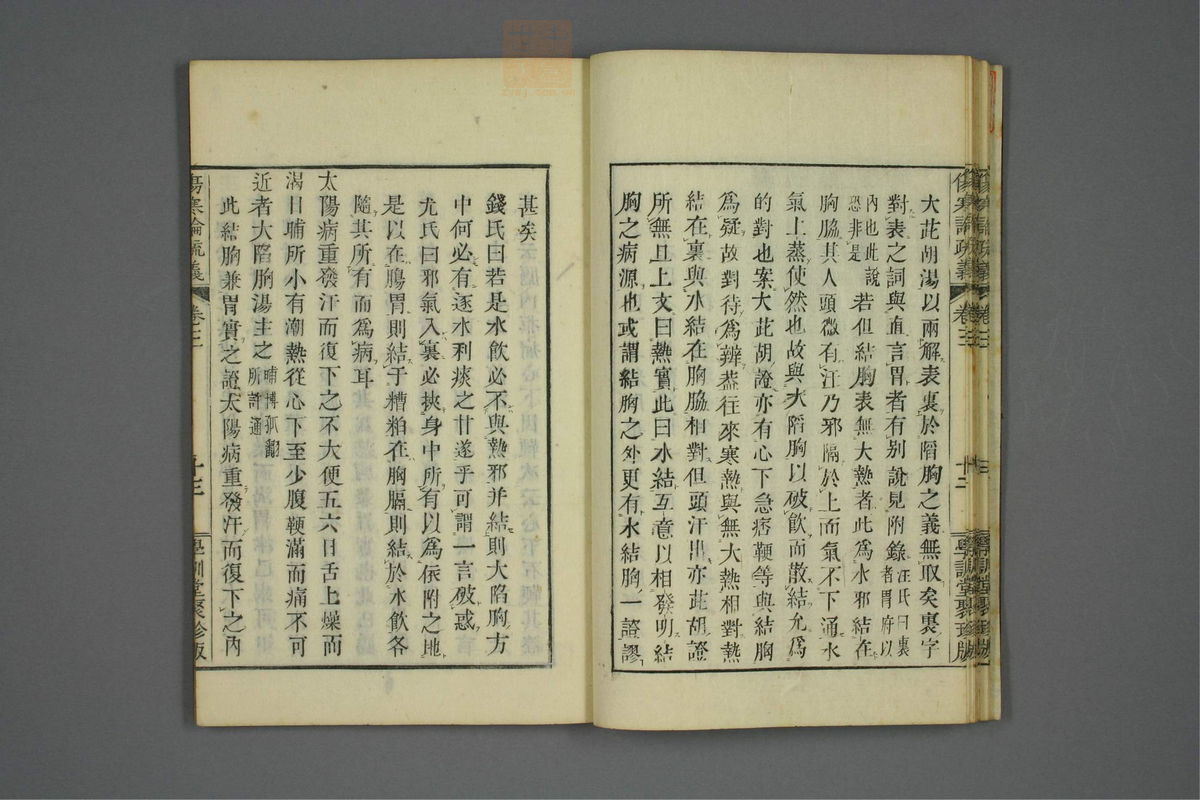 大茈胡湯以兩解表裏於陷胸之義無取矣裏字
對表之詞與直言胃者有別說見附錄汪氏曰裏者胃府以
內也此說恐非是若但結胸表無大熱者此爲水邪結在
胸脇其人頭微有汗乃邪隔於上而氣不下通水
氣上蒸使然也故與大陷胸以破飲而散結尤爲
的對也案大茈胡證亦有心下急痞鞕等與結胸
爲疑故對待爲辨蓋往來寒熱與無大熱相對熱
結在裏與水結在胸脇相對但頭汗出亦茈胡證
所無且上文曰熱實此曰水結互意以相發明結
胸之病源也或謂結胸之外更有水結胸一證謬
傷寒論疏義
卷三
十二
學訓堂聚珍版
甚矣
錢氏曰若是水飲必不與熱邪并結則大陷胸方
中何必有逐水利痰之甘遂乎可謂一言破惑
尤氏曰邪氣入裏必挾身中所有以爲依附之地
是以在腸胃則結于糟粕在胸膈則結於水飲各
隨其所有而爲病耳
太陽病重發汗而復下之不大便五六日舌上燥而
渴日晡所小有潮熱從心下至少腹鞕滿而痛不可
近者大陷胸湯主之晡博孤翻所許通
此結胸兼胃實之證太陽病重發汗而復下之內
傷寒論疏義
卷三
十三
學訓堂聚珍版